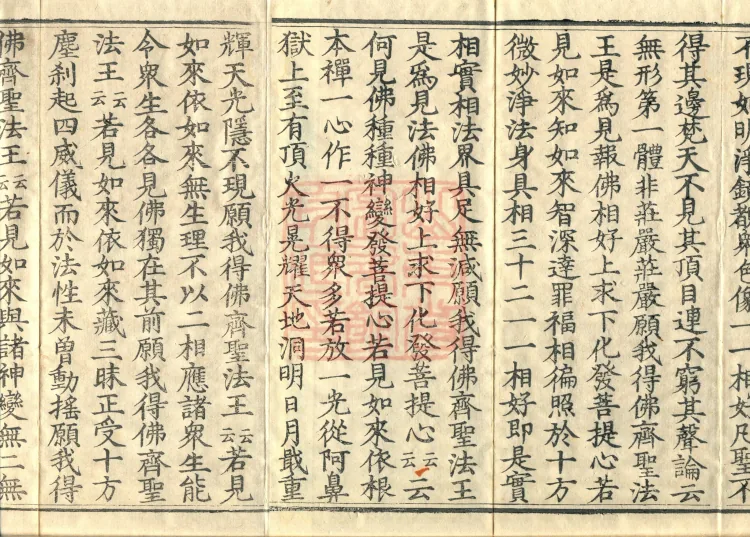 不現如明淨鏡覩衆色像一一相好凡聖不
得其邊梵天不見其頂目連不窮其聲論云
無形第一體非莊嚴莊嚴願我得佛齊聖法
王是爲見報佛相好上求下化發菩提心若
見如來知如來智深達罪福相徧照於十方
微妙淨法身具相三十二一一相好即是實
相實相法界具足無減願我得佛齊聖法王
是爲見法佛相好上求下化發菩提心云云云
何見佛種種神變發菩提心若見如來依根
本禪一心作一不得衆多若放一光從阿鼻
獄上至有頂火光晃耀天地洞明日月戢重
輝天光隱不現願我得佛齊聖法王云云若見
如來依如來無生理不以二相應諸衆生能
令衆生各各見佛獨在其前願我得佛齊聖
法王云云若見如來依如來藏三昧正受十方
塵刹起四威儀而於法性未曾動搖願我得
佛齊聖法王云云若見如來與諸神變無二無